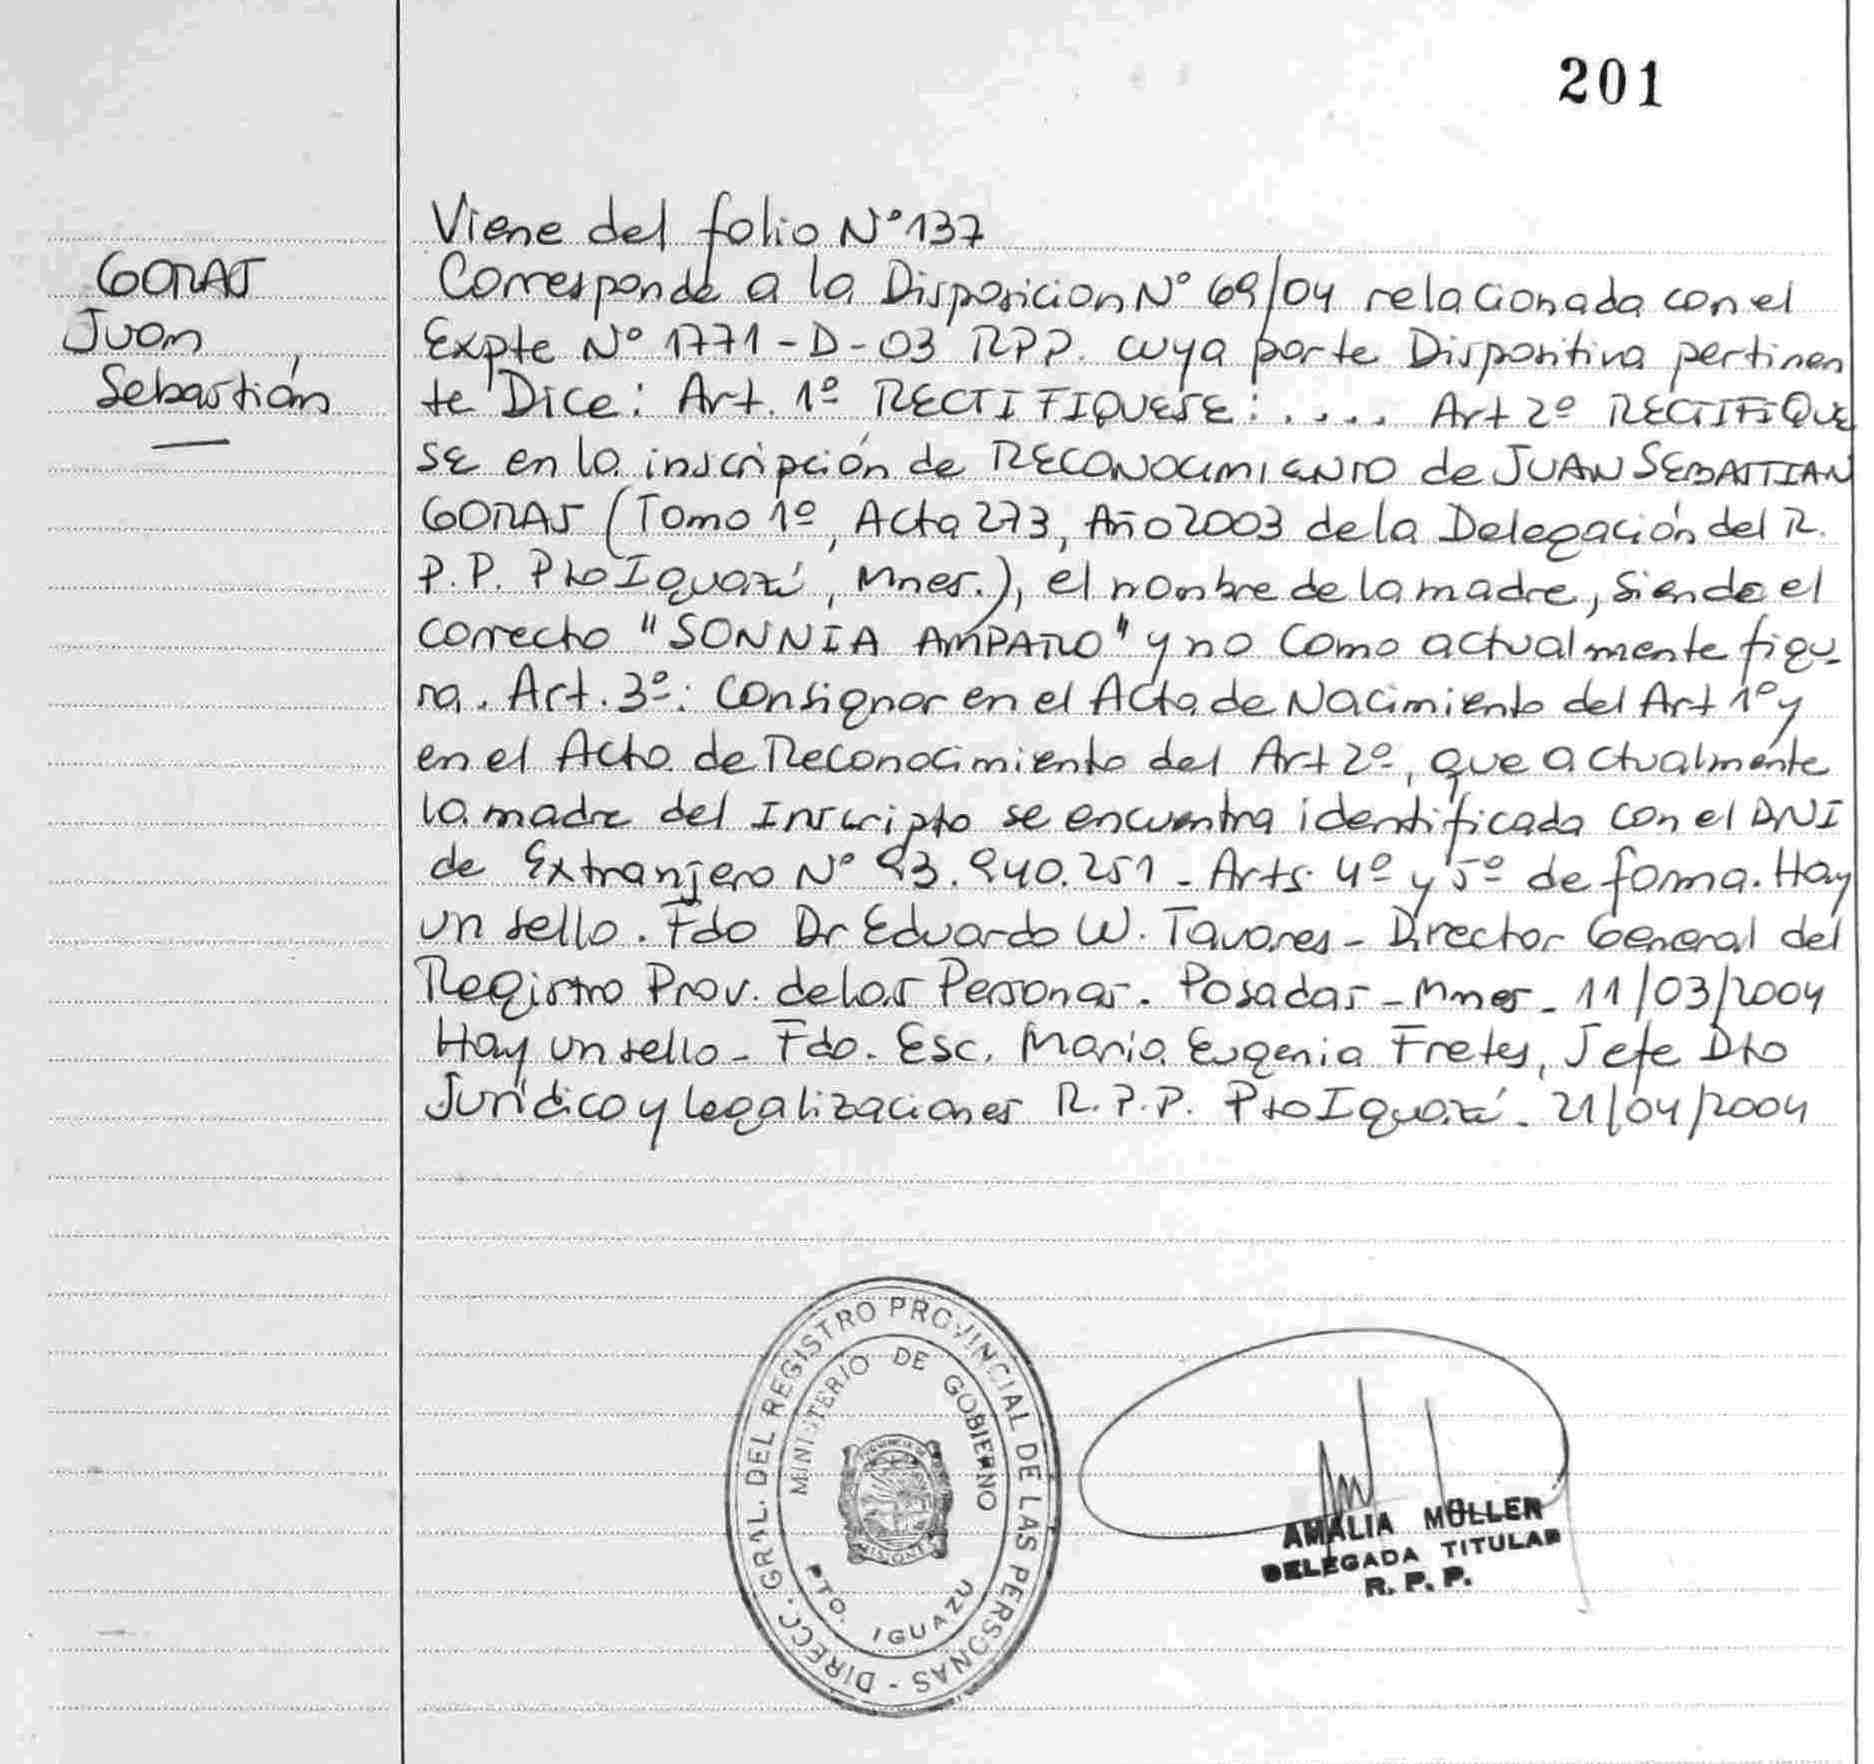 201
GORAJ
Juan
Sebastián
Viene del folio N° 137
Corresponde a la Disposicion N° 69/04 relacionada con el
Expte N° 1771-D-03 RPP. cuya parte Dispositiva pertinen
te Dice: Art. 1º RECTIFIQUESE: .... Art 2º RECTIFIQUE
SE en la inscripción de RECONOCIMIENTO de JUAN SEBASTIAN
GORAJ (Tomo 1º, Acta 273, Año 2003 de la Delegación del R.
P.P. Pto Iguazú, Mnes.), el nombre de la madre, siendo el
correcto "SONNIA AMPARO" y no como actualmente figu-
ra. Art. 3º: Consignar en el Acta de Nacimiento del Art 1º y
en el Acta de Reconocimiento del Art 2º, que actualmente
la madre del Inscripto se encuentra identificada con el DNI
de Extranjero N° 93.940.251 - Arts. 4º y 5º de forma. Hay
un sello. Fdo Dr Eduardo W. Tavares - Director General del
Registro Prov. de las Personas. Posadas - Mnes - 11/03/2004
Hay un sello - Fdo. Esc. Maria Eugenia Fretes, Jefe Dto
Jurídico y legalizaciones R.P.P. Pto Iguazú - 21/04/2004
DIRECC. GRAL. DEL REGISTRO PROVINCIAL DE LAS PERSONAS -
MINISTERIO DE GOBIERNO
PROVINCIA DE
MISIONES
PTO. IGUAZU
AMALIA MÜLLER
DELEGADA TITULAR
R. P. P.